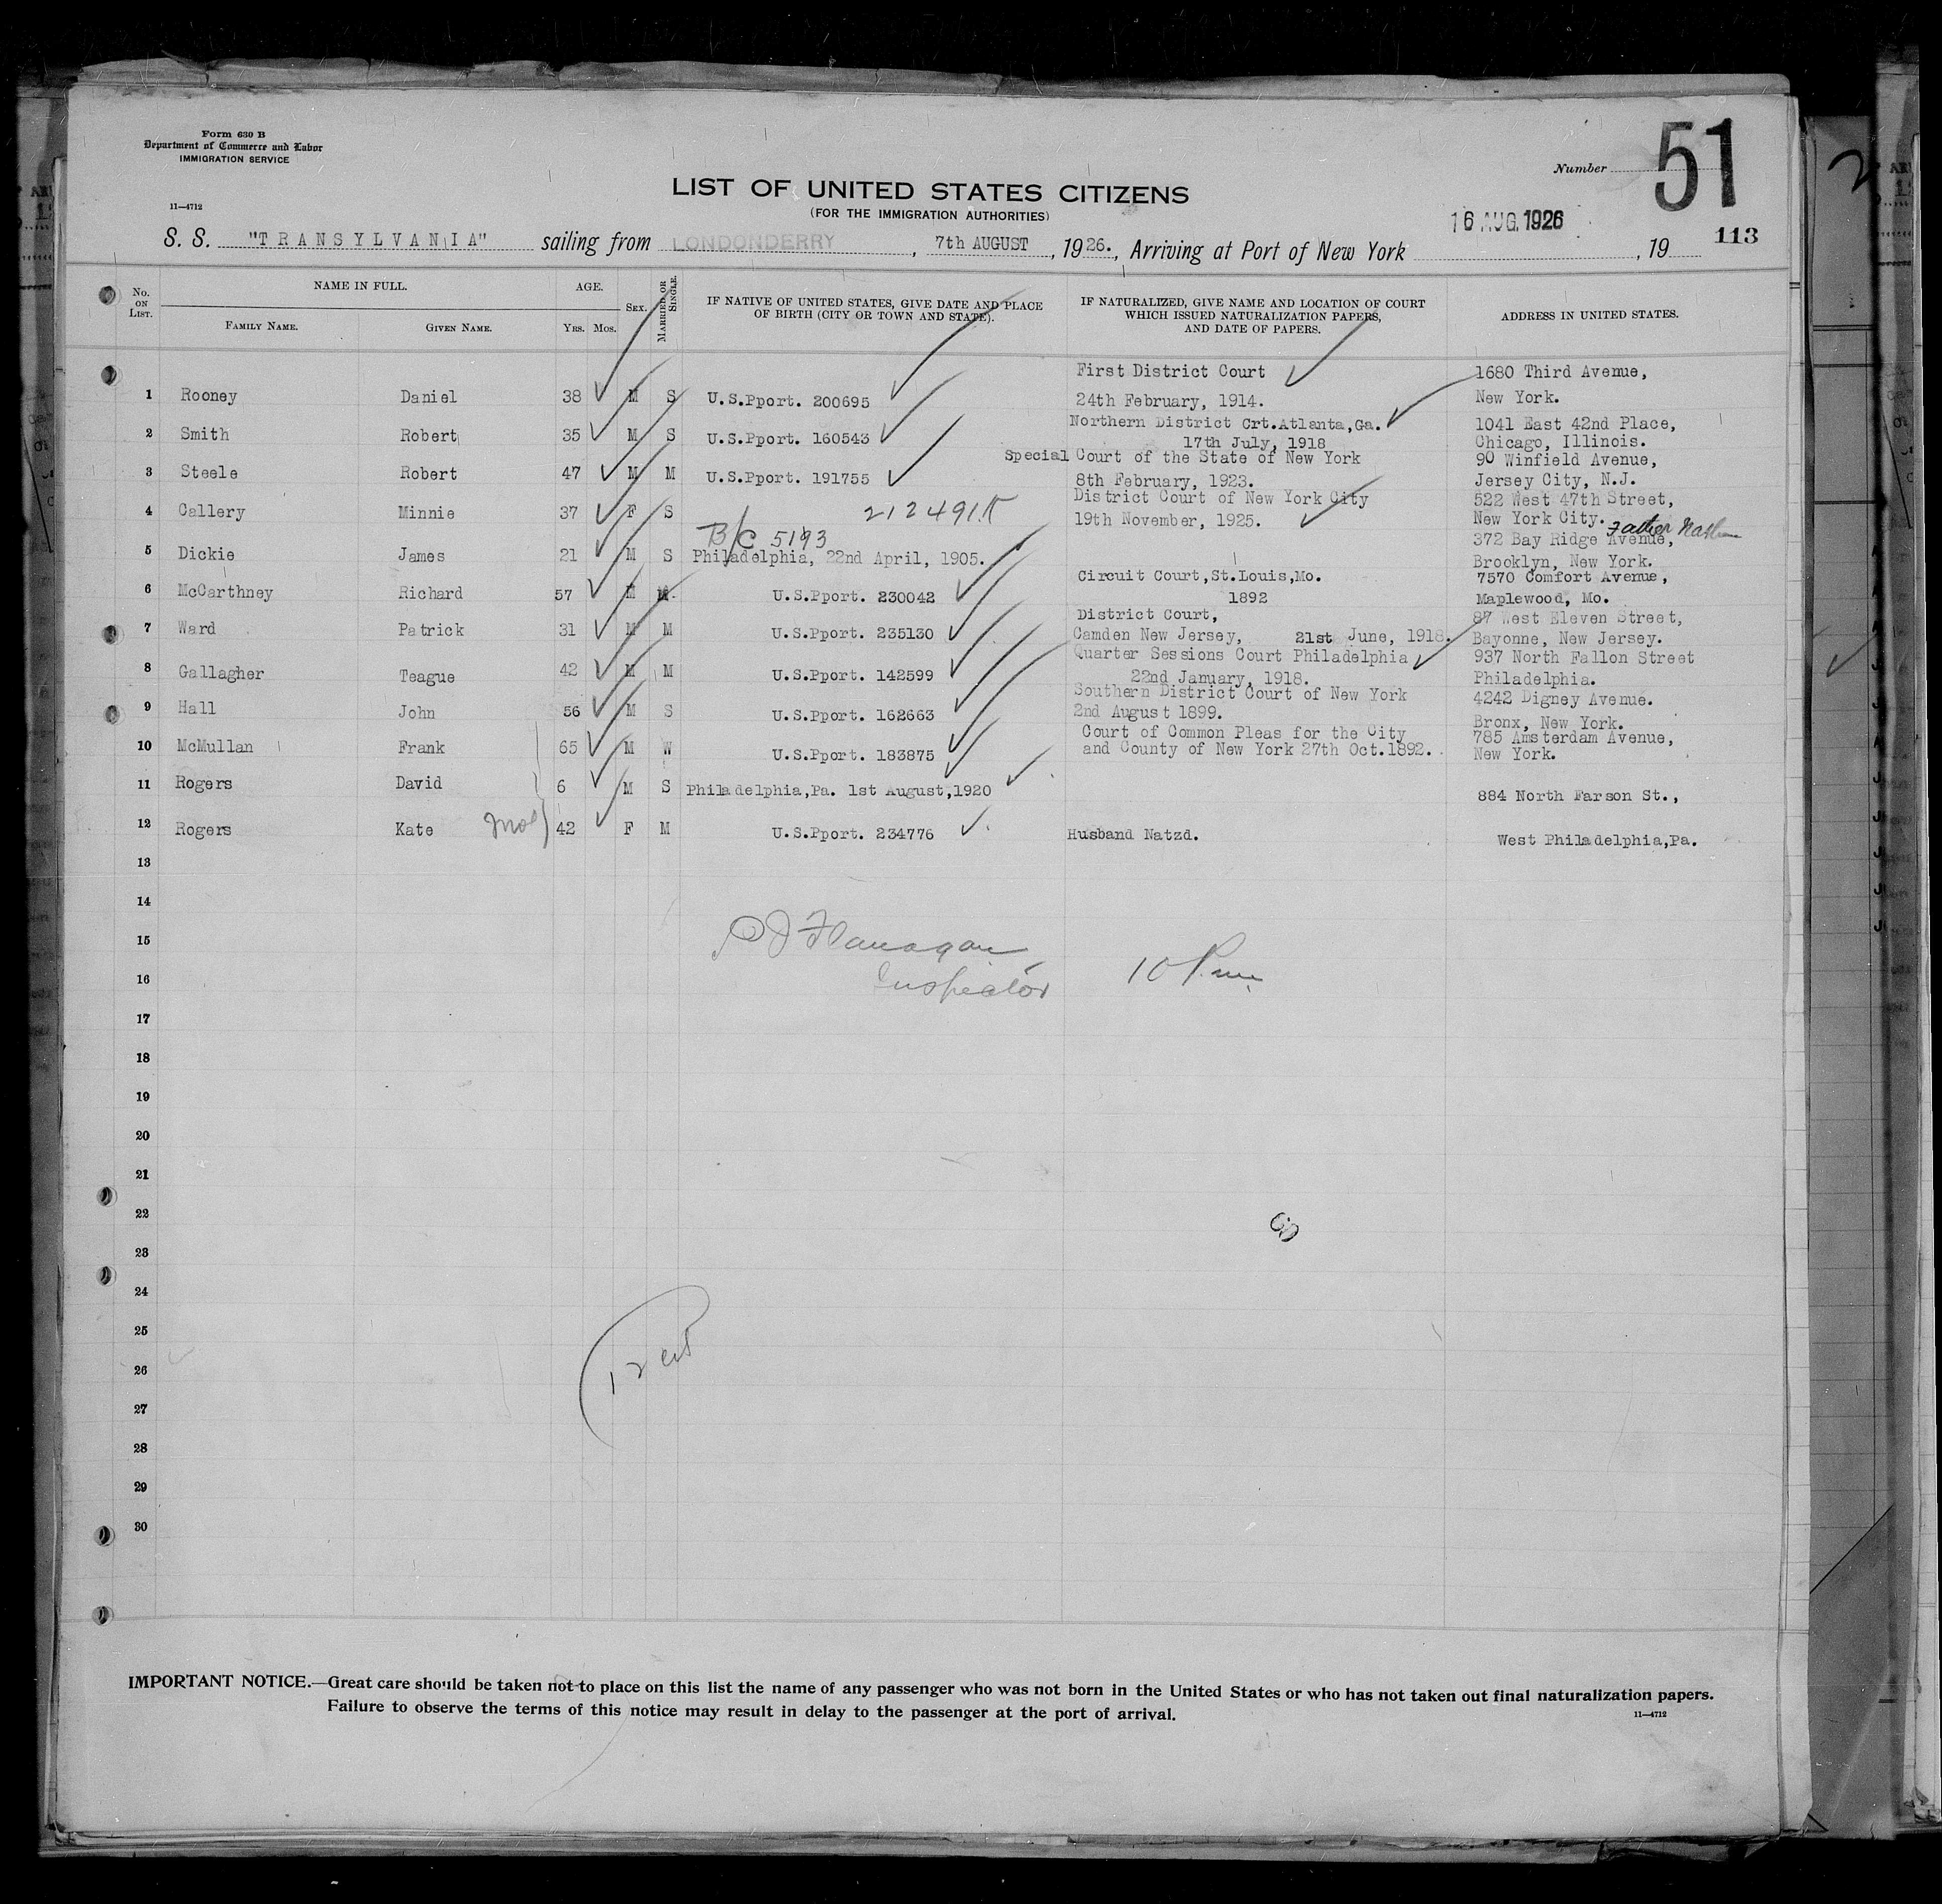 Form 630 B
Department of Commerce and Labor
IMMIGRATION SERVICE
11—4712
Number 51
LIST OF UNITED STATES CITIZENS
(FOR THE IMMIGRATION AUTHORITIES)
16 AUG. 1926
S. S. "TRANSYLVANIA" sailing from LONDONDERRY, 7th AUGUST, 1926., Arriving at Port of New York , 19 113
No. ON LIST. NAME IN FULL. FAMILY NAME. GIVEN NAME. AGE. YRS. MOS. SEX. MARRIED OR SINGLE. IF NATIVE OF UNITED STATES, GIVE DATE AND PLACE OF BIRTH (CITY OR TOWN AND STATE). IF NATURALIZED, GIVE NAME AND LOCATION OF COURT WHICH ISSUED NATURALIZATION PAPERS, AND DATE OF PAPERS. ADDRESS IN UNITED STATES.
First District Court 1680 Third Avenue,
1 Rooney Daniel 38 M S U.S.Pport. 200695 24th February, 1914. New York.
Northern District Crt.Atlanta,Ga. 1041 East 42nd Place,
2 Smith Robert 35 M S U.S.Pport. 160543 17th July, 1918 Chicago, Illinois.
Special Court of the State of New York 90 Winfield Avenue,
3 Steele Robert 47 M M U.S.Pport. 191755 8th February, 1923. Jersey City, N.J.
District Court of New York City 522 West 47th Street,
4 Callery Minnie 37 F S 212491 19th November, 1925. New York City.
B/C 5193 Father 372 Bay Ridge Avenue,
5 Dickie James 21 M S Philadelphia, 22nd April, 1905. Brooklyn, New York.
Circuit Court,St.Louis,Mo. 7570 Comfort Avenue,
6 McCarthney Richard 57 M M. U.S.Pport. 230042 1892 Maplewood, Mo.
District Court, 87 West Eleven Street,
7 Ward Patrick 31 M M U.S.Pport. 235130 Camden New Jersey, 21st June, 1918. Bayonne, New Jersey.
Quarter Sessions Court Philadelphia 937 North Fallon Street
8 Gallagher Teague 42 M M U.S.Pport. 142599 22nd January, 1918. Philadelphia.
Southern District Court of New York 4242 Digney Avenue.
9 Hall John 56 M S U.S.Pport. 162663 2nd August 1899. Bronx, New York.
Court of Common Pleas for the City 785 Amsterdam Avenue,
10 McMullan Frank 65 M W U.S.Pport. 183875 and County of New York 27th Oct.1892. New York.
11 Rogers David 6 M S Philadelphia,Pa. 1st August,1920 884 North Farson St.,
12 Rogers Kate 42 F M U.S.Pport. 234776 Husband Natzd. West Philadelphia,Pa.
13
14
15 Flanagan
16 Inspector 10 P.m.
17
18
19
20
21
22
23
24
25
26
27
28
29
30
IMPORTANT NOTICE.—Great care should be taken not to place on this list the name of any passenger who was not born in the United States or who has not taken out final naturalization papers.
Failure to observe the terms of this notice may result in delay to the passenger at the port of arrival.
11—4712